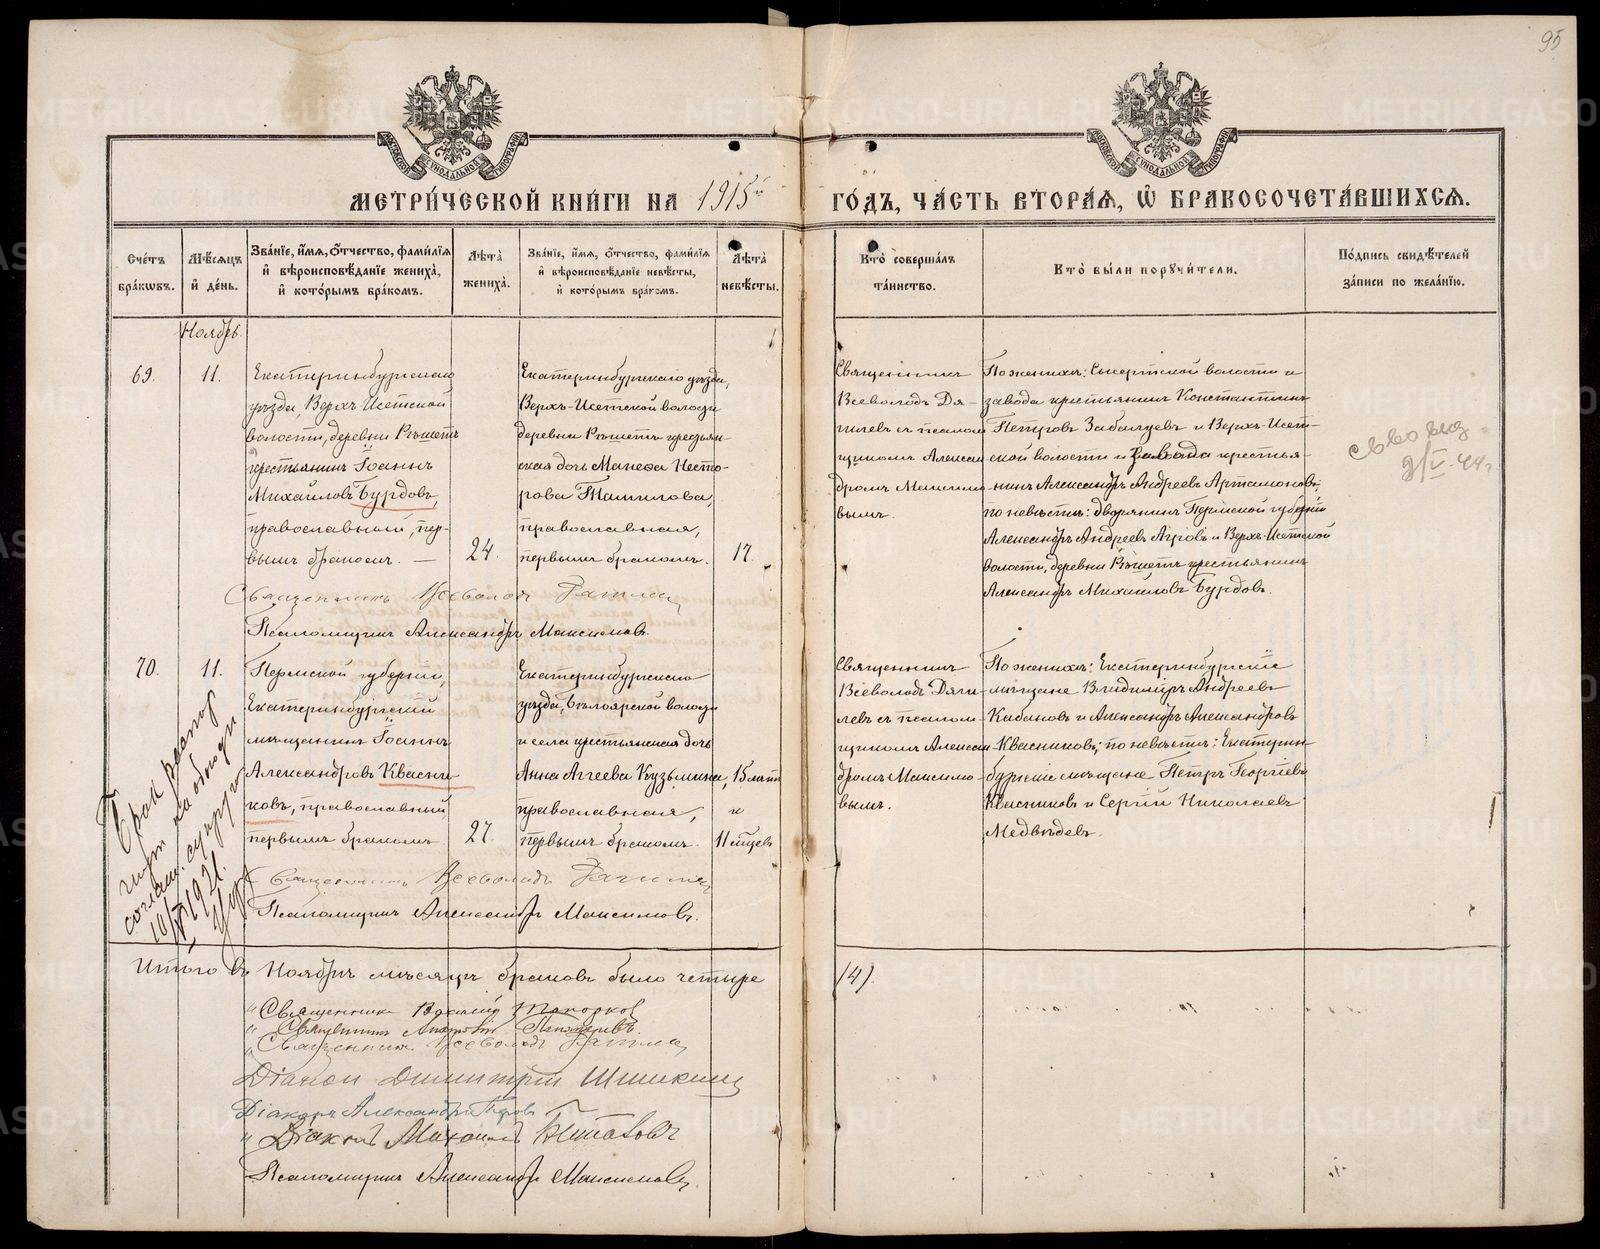 95
МЕТРИ́ЧЕСКОЙ КНИ́ГИ НА 1915й ГО́ДЪ, ЧА́СТЬ ВТОРА́Ѧ, Ѡ БРАКОСОЧЕТА́ВШИХСѦ.
Сче́тъ бра́кѡвъ.
Мѣ́сяцъ и҆ де́нь.
Зва́нїе, и҆́мѧ, ѻ҆́тчество, фами́лїѧ и҆ вѣроисповѣ́данїе жениха̀, и҆ кото́рымъ бра́комъ.
Лѣ́та жениха̀.
Зва́нїе, и҆́мѧ, ѻ҆́тчество, фами́лїѧ и҆ вѣроисповѣ́данїе невѣ́сты, и҆ кото́рымъ бра́комъ.
Лѣ́та невѣ́сты.
Кто̀ соверша́лъ та́инство.
Кто̀ бы́ли порꙋчи́тели.
По́дпись свидѣ́телей за́писи по жела́нїю.
Ноябрь.
69.
11.
Екатеринбургскаго
уѣзда, Верхъ-Исетской
волости, деревни Рѣшетъ
крестьянинъ Іоаннъ
Михайловъ Бурдовъ,
православный, пер-
вымъ бракомъ. —
24.
Екатеринбургскаго уѣзда,
Верхъ-Исетской волости
деревни Рѣшетъ крестьян-
ская дочь Манефа Несто-
рова Томилова,
православная,
первымъ бракомъ.
17.
Священникъ
Всеволодъ Дя-
гилевъ съ псалом
щикомъ Алексан
дромъ Максимо
вымъ.
По женихѣ: Сысертской волости и
завода крестьянинъ Константинъ
Петровъ Забалуевъ и Верхъ-Исет-
ской волости и завода крестья-
нинъ Александръ Андреевъ Артамоновъ,
по невѣстѣ: дворянинъ Пермской губерніи
Александръ Андреевъ Агровъ и Верхъ-Исетской
волости, деревни Рѣшетъ крестьянинъ
Александръ Михайловъ Бурдовъ.
Священникъ Всеволодъ Дягилев
Псаломщикъ Александръ Максимовъ.
70.
11.
Пермской губерніи,
Екатеринбургскій
мѣщанинъ Іоаннъ
Александровъ Квасни-
ковъ, православный
первымъ бракомъ
27.
Екатеринбургскаго
уѣзда, Бѣлоярской волости
и села крестьянская дочь
Анна Агеева Кузьмина,
православная,
первымъ бракомъ.
15 лѣтъ
и
11 мѣцевъ
Священникъ
Всеволодъ Дяги-
левъ съ псалом-
щикомъ Алексан-
дромъ Максимо
вымъ.
По женихѣ: Екатеринбургскіе
мѣщане Владиміръ Андреевъ
Кабановъ и Александръ Александровъ
Квасниковъ; по невѣстѣ: Екатерин-
бургскіе мѣщане Петръ Георгіевъ
Квасниковъ и Сергій Николаевъ
Медвѣдевъ.
Брак растор
гнут по обоюдн
соглаш. супругов
10/V 1921.
Священникъ Всеволодъ Дягилев
Псаломщикъ Александръ Максимовъ.
Итого въ Ноябрѣ мѣсяцѣ браковъ было четыре
(4).
Священникъ Василій Топорков
Священникъ Анатолій
Священникъ Всеволодъ Дягилев
Діакон Димитрій Шишкин
Діаконъ Александръ
Діаконъ Михаилъ
Псаломщикъ Александръ Максимовъ.
METRIKI.GASO-URAL.RU